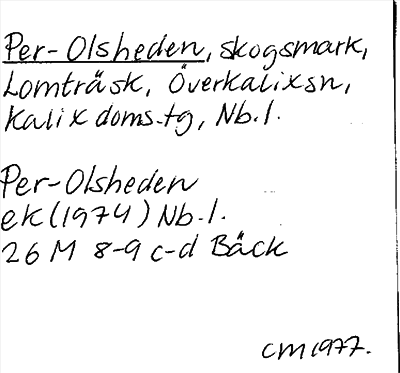 Per-Olsheden, skogsmark,
Lomträsk, Överkalixsn,
Kalix doms.tg, Nb.l.
Per-Olsheden
ek (1974) Nb.l.
26 M 8-9 c-d Bäck
CM 1977.